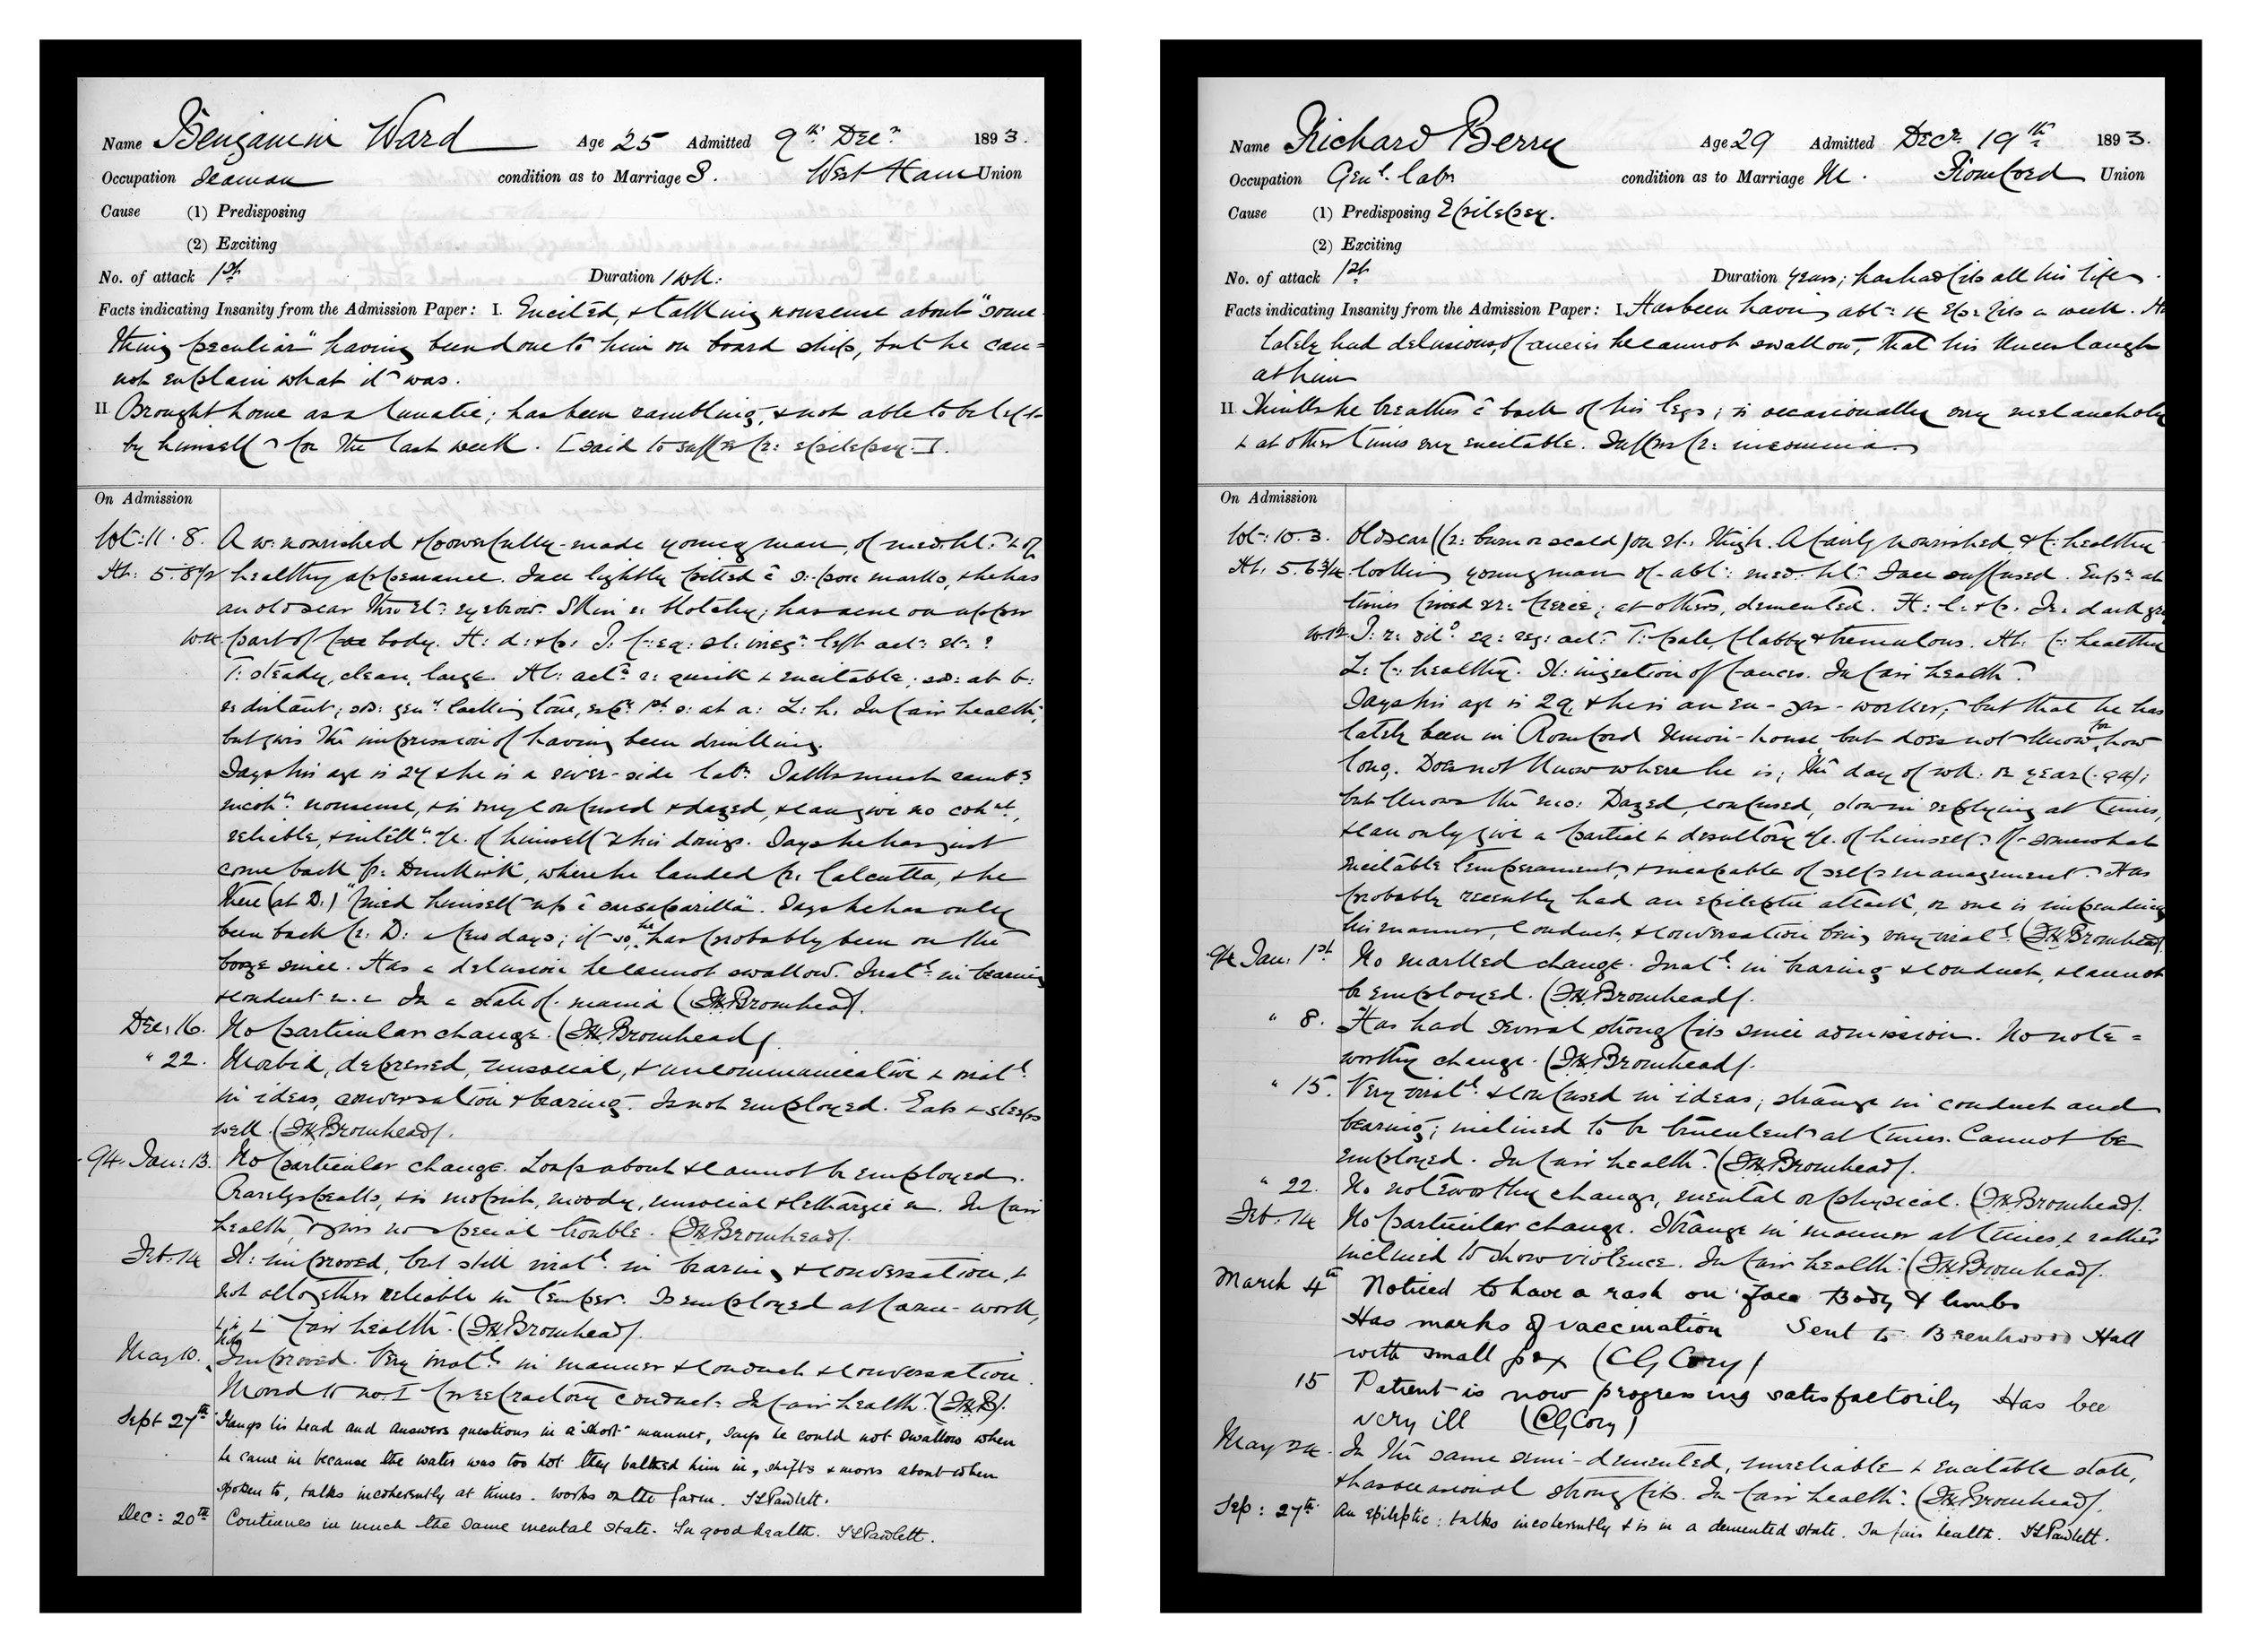 Name Benjamin Ward Age 25 Admitted 9th Decr 1893.
Occupation Seaman condition as to Marriage S. West Ham Union
Cause (1) Predisposing
(2) Exciting
No. of attack 1st Duration 1 wk:
Facts indicating Insanity from the Admission Paper: I. Excited, & talking nonsense about "some-
thing peculiar" having been done to him on board ship, but he can=
not explain what it was.
II Brought home as a lunatic; has been rambling, & not able to be left
by himself for the last week. [Said to suffer fr: epilepsy.]
On Admission
Wt: 11. 8. A w: nourished & powerfully-made young man, of med: ht: & of
Ht: 5.8½ healthy appearance. Face lightly pitted c̄ s-pox marks, & he has
an old scar thro' lt: eyebrow. Skin blotchy; has acne on upper
part of body. H: d: & P: f: eq: sl: irreg: left act: rt: ?
T: steady, clean, large. Ht: actn quick & excitable; sd: at b:
distant; sds: genly lacking tone, 1st s: at a: L: h. In fair health,
but gives the impression of having been drinking.
Says his age is 24 & he is a river-side labr. Talks much
incoht nonsense, & is very confused & dazed, & can give no coht,
reliable, & intellt a/c. of himself & his doings. Says he has just
come back fr: Dunkirk, where he landed fr: Calcutta, & he
there (at D:) "fixed himself up c̄ sarsaparilla". Says he has only
been back fr: D: a few days; if so, he has probably been on the
booze since. Has a delusion he cannot swallow. Irratl in bearing
& conduct In a state of mania (F.H. Bromhead).
Dec: 16. No particular change. (F.H. Bromhead).
" 22. Morbid, depressed, unsocial, & uncommunicative & irratl
in ideas, conversation & bearing. Is not employed. Eats & sleeps
well. (F.H. Bromhead).
.94. Jan: 13. No particular change. Loafs about & cannot be employed.
Rarely speaks, & is mopish, moody, unsocial & lethargic In fair
health, & gives no special trouble. (F.H. Bromhead).
Feb: 14 Sl: improved, but still irratl in bearing & conversation, &
not altogether reliable in temper. Is employed at farm-work,
& is in fair health. (F.H. Bromhead).
May 10. Not Improved. Very irratl in manner & conduct & conversation.
Moved to no. 1 for refractory conduct. In fair health. (F.H.B).
Sept 27th Hangs his head and answers questions in a "short" manner, says he could not swallow when
he came in because the water was too hot they bathed him in, shifts & moves about when
spoken to, talks incoherently at times. Works on the farm. Pawlett.
Dec: 20th Continues in much the same mental state. In good health. Pawlett.
Name Richard Berry Age 29 Admitted Decr 19th 1893.
Occupation Genl. labr condition as to Marriage M. Romford Union
Cause (1) Predisposing Epilepsy.
(2) Exciting
No. of attack 1st Duration years; has had fits all his life.
Facts indicating Insanity from the Admission Paper: I. Has been having abt: 4 Epc: fits a week. Has
lately had delusions, fancies he cannot swallow, that his knees laugh
at him
II Thinks he breathes c̄ back of his legs; is occasionally very melancholy
& at other times very excitable. Suffers fr: insomnia.
On Admission
Wt: 10. 3. Old scar (fr: burn or scald) on rt: thigh. A fairly nourished, & f: healthy
Ht. 5.6¾ looking young man of abt: med: ht: Face suffused. Expn at
times fixed & fierce; at others, demented. H: l: & p. Ie: dark gr
P: r: dild eq: reg: act: T: pale, flabby & tremulous. Ht: f: healthy
L: f: healthy. Sl: injection of fauces. In fair health.
Says his age is 29, & he is an ex-gas-worker; but that he has
lately been in Romford Union-house, but does not know for how
long. Does not know where he is; the day of wk: or year (.94);
but knows the mo: Dazed, confused, slow in replying at times,
& can only give a partial & desultory a/c. of himself. Of somewhat
excitable temperament, & incapable of self-management. Has
probably recently had an epileptic attack, or one is impending
his manner, conduct, & conversation being very irratl (F.H. Bromhead)
.94 Jan: 1st No marked change. Irratl in bearing & conduct, & cannot
be employed. (F.H. Bromhead).
" 8. Has had several strong fits since admission. No note=
worthy change. (F.H. Bromhead).
" 15. Very irratl & confused in ideas; strange in conduct and
bearing; inclined to be truculent at times. Cannot be
employed. In fair health. (F.H. Bromhead).
" 22. No noteworthy change, mental or physical. (F.H. Bromhead).
Feb: 14 No particular change. Strange in manner at times, & rather
inclined to show violence. In fair health. (F.H. Bromhead).
March 4th Noticed to have a rash on face Body & limbs
Has marks of vaccination Sent to Brentwood Hall
with small pox (CG Cory)
15 Patient is now progressing satisfactorily Has bee
very ill (CG Cory)
May 24. In the same semi-demented, unreliable & excitable state,
& has occasional strong fits. In fair health. (F.H. Bromhead).
Sep: 27th An epileptic: talks incoherently & is in a demented state. In fair health. Pawlett.